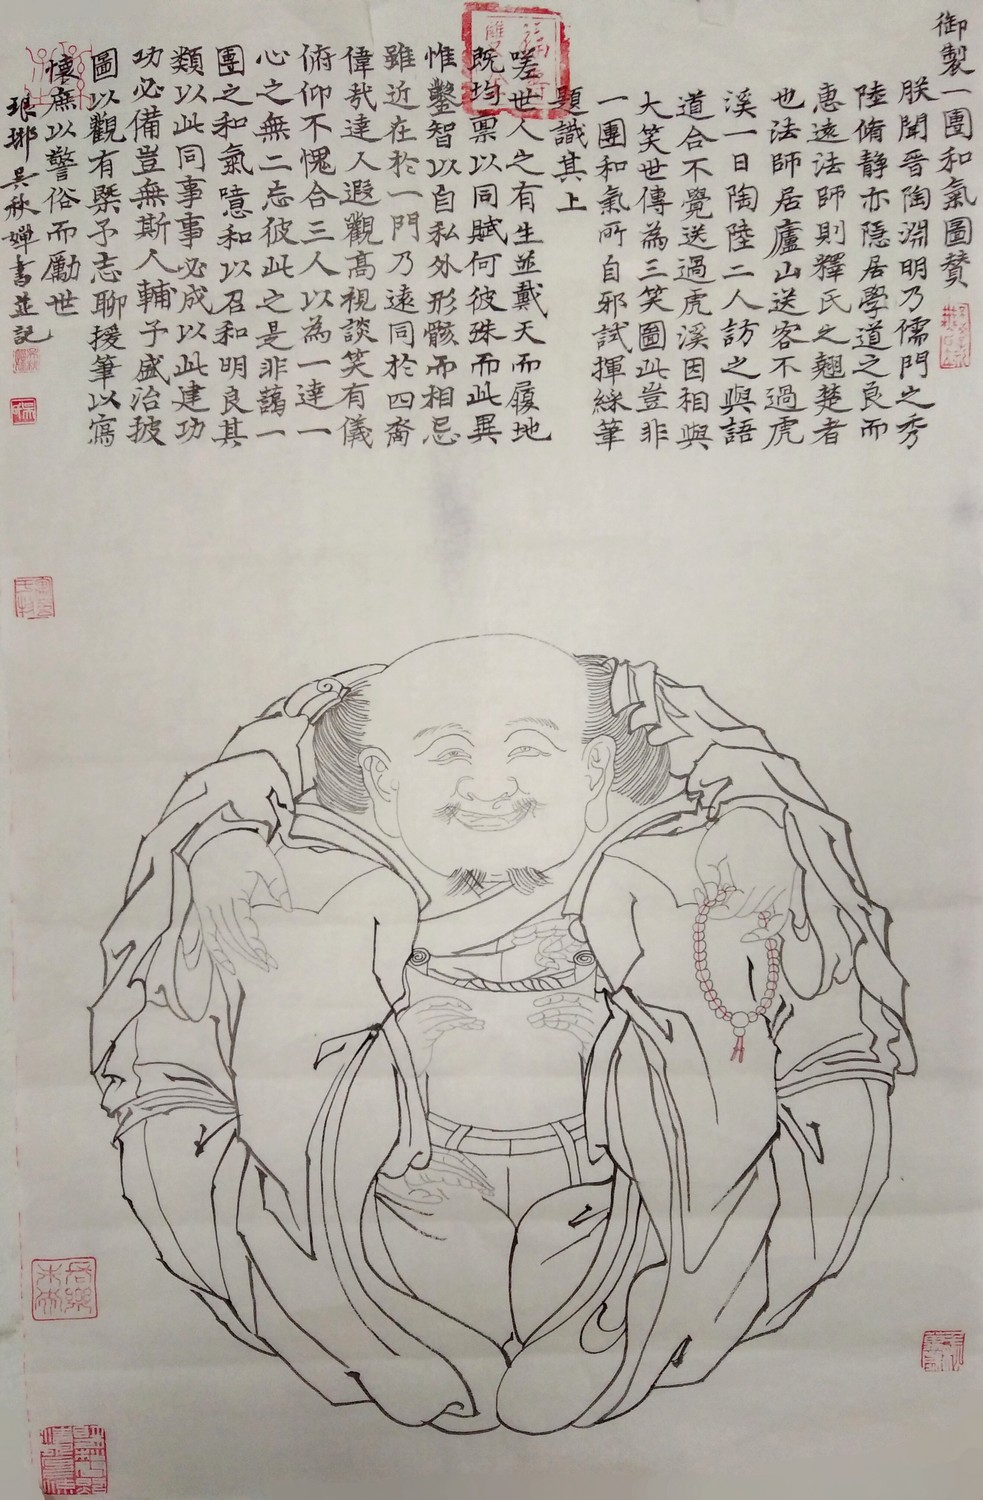 御製一團和氣圖贊
朕聞晉陶淵明乃儒門之秀
陸脩静亦隱居學道之良而
惠遠法師則釋氏之翹楚者
也法師居廬山送客不過虎
溪一日陶陸二人訪之與語
道合不覺送過虎溪因相與
大笑世傳為三笑圖此豈非
一團和氣所自邪試揮綵筆
題識其上
嗟世人之有生並戴天而履地
既均禀以同賦何彼殊而此異
惟鑿智以自私外形骸而相忌
雖近在於一門乃遠同於四裔
偉哉達人遐觀高視談笑有儀
俯仰不愧合三人以為一達一
心之無二忘彼此之是非藹一
團之和氣噫和以召和明良其
類以此同事事必成以此建功
功必備豈無斯人輔予盛治披
圖以觀有槩予志聊援筆以寫
懷庶以警俗而勵世
琅琊吴秋嬋書並記